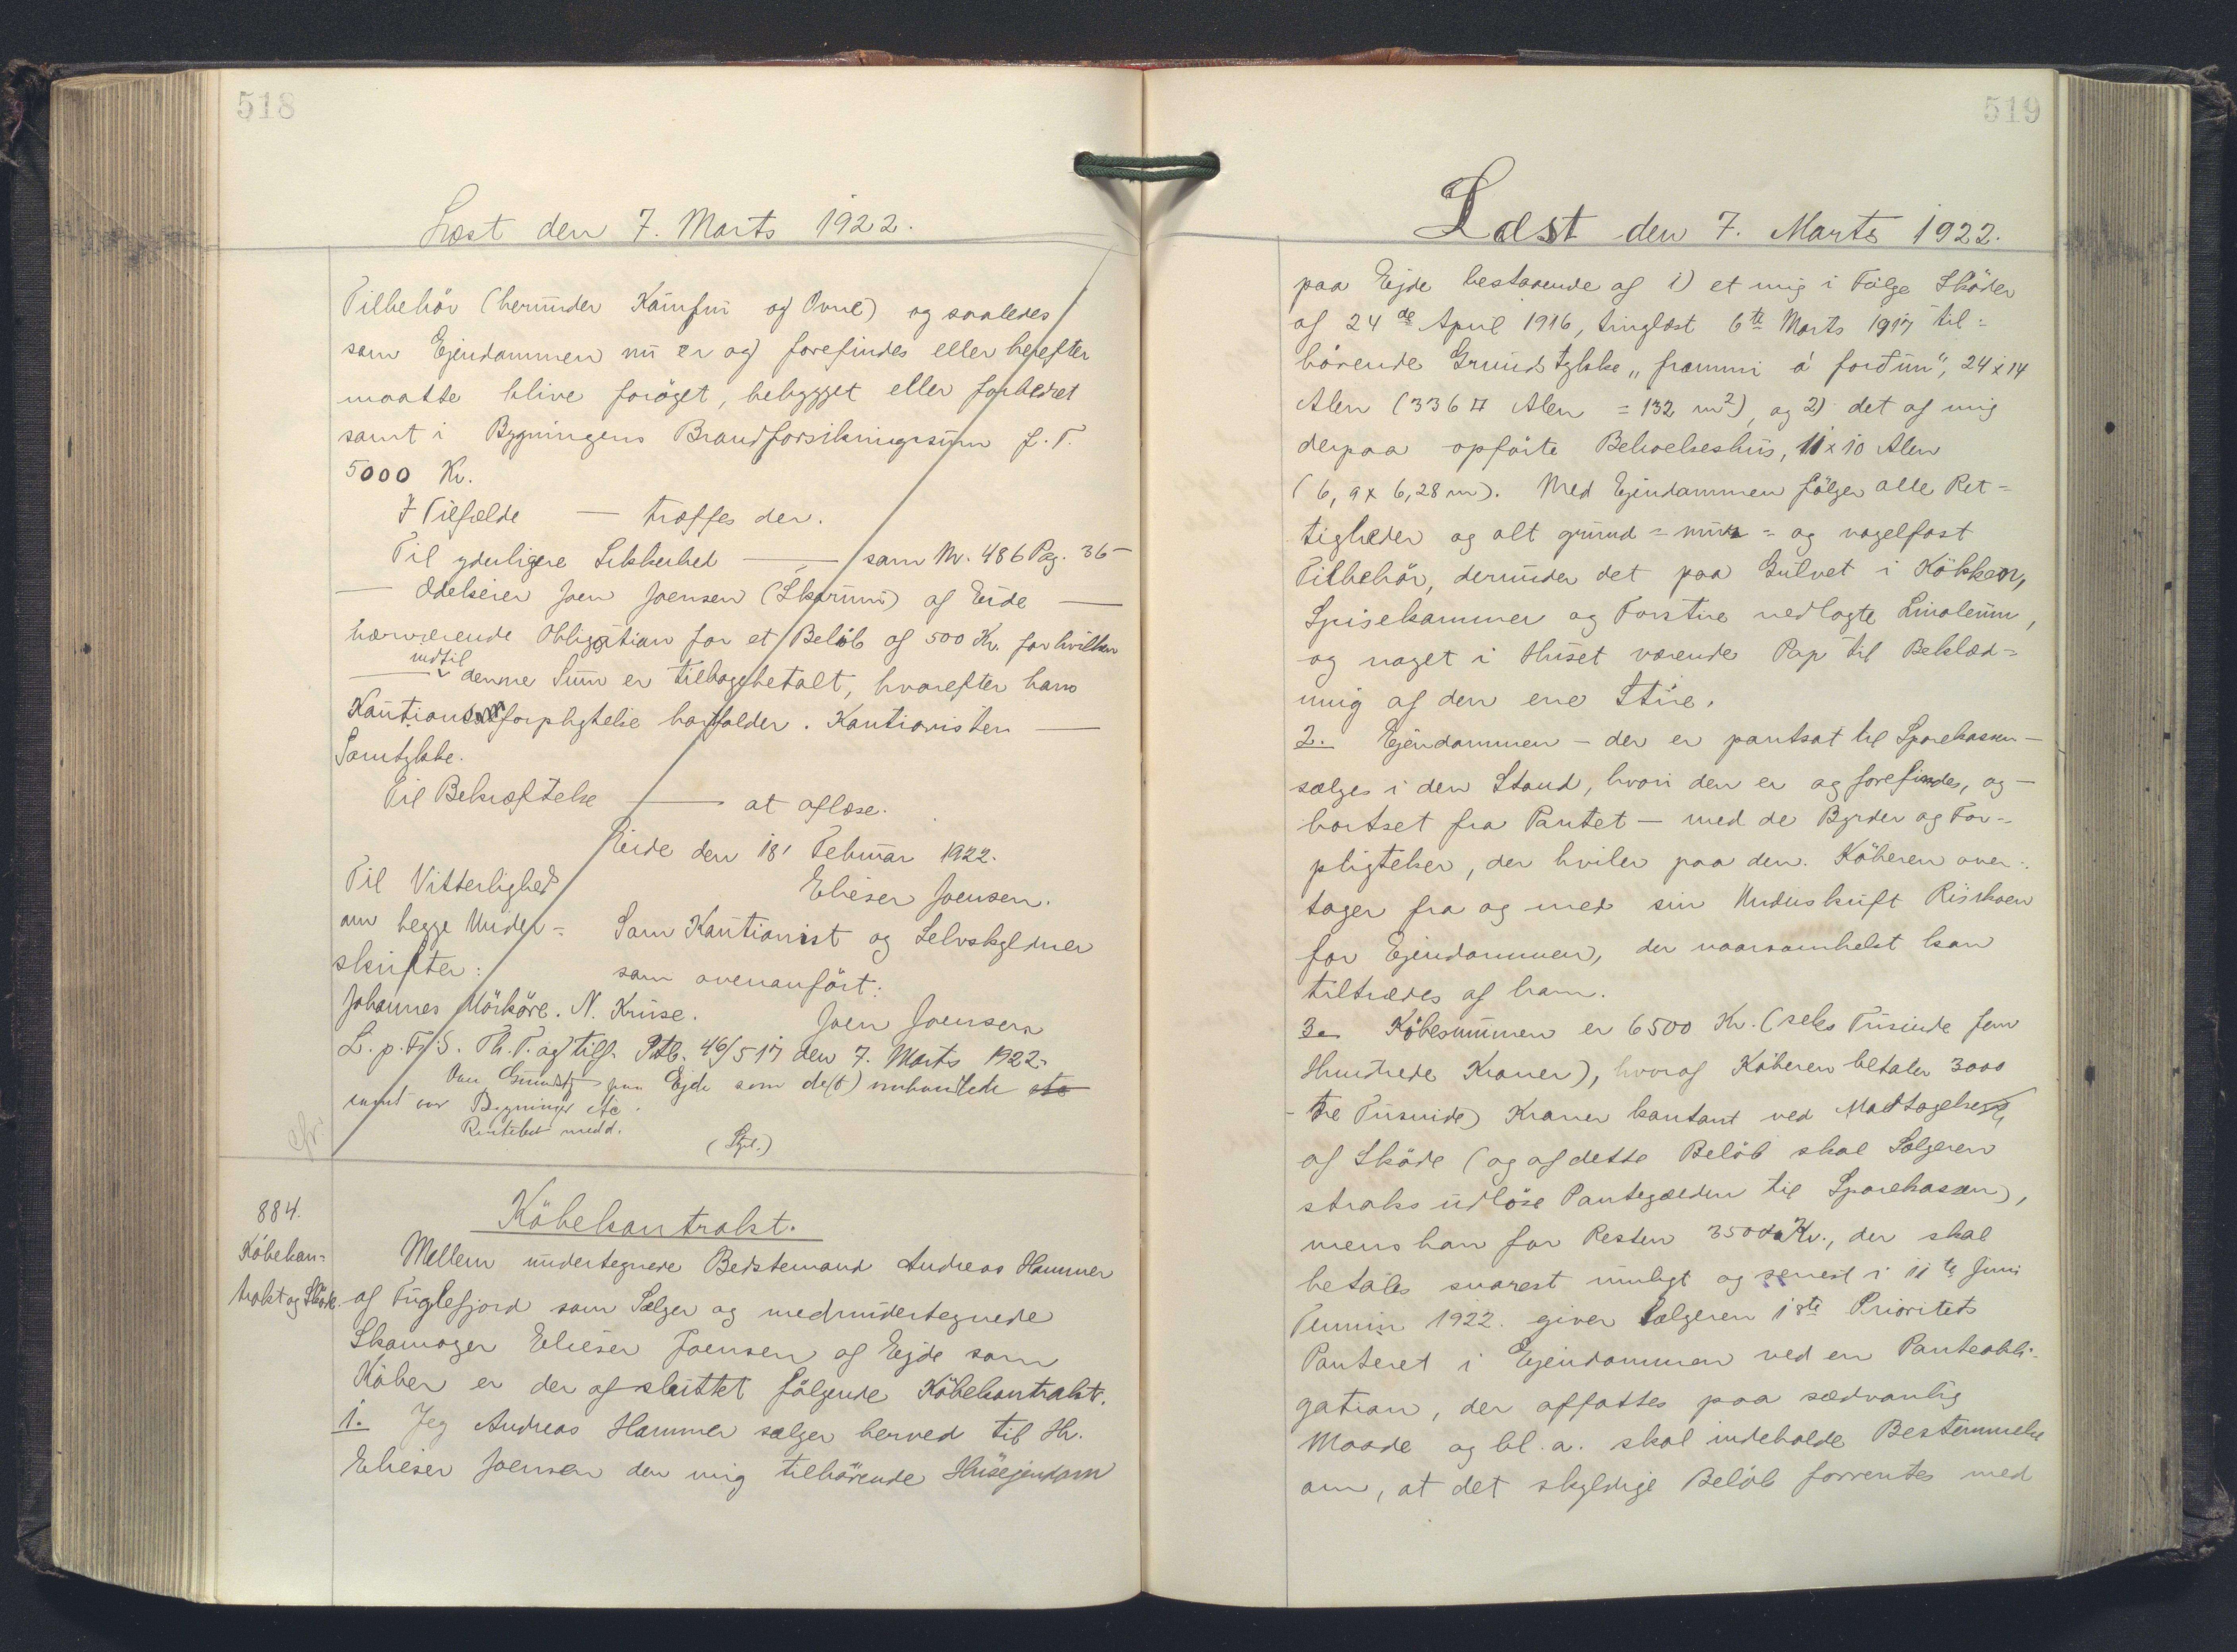 518
Læst den 7. Marts 1922.
Tilbehör (herunder Komfur og Ovne) og saaledes
som Ejendommen nu er og forefindes eller herefter
maatte blive foröget, bebygget eller forbedret
samt i Bygningens Brandforsikringssum f. T.
5000 Kr.
I Tilfælde — træffes der.
Til yderligere Sikkerhed — som Nr. 486 Pag. 36 —
— Odelseier Joen Joensen (Skarum) af Eide —
nærværende Obligation for et Belöb af 500 Kr. for hvilken
indtil
— denne Sum er tilbagebetalt, hvorefter hans
Kautionsforpligtelse bortfalder. Kautionisten —
Samtykke.
Til Bekræftelse — at aflæse.
Eide den 18' Februar 1922.
Til Vitterlighed
Elieser Joensen.
om begge Under=
Som Kautionist og Selvskyldner
skrifter:
som ovenanfört:
Johannes Mörköre. N. Kruse.
Joen Joensen
L. p. F. S. Th. T. og tilf. Ptb. 46/517 den 7. Marts 1922.
paa Ejde som de(t) omhandlede
samt om Bygninger etc.
medd.
884.
Köbekon=
trakt og Sköde.
Köbekontrakt.
Mellem undertegnede Bedstemand Andreas Hammer
af Fuglefjord som Sælger og medundertegnede
Skomager Elieser Joensen af Ejde som
Köber er der afsluttet fölgende Köbekontrakt.
1. Jeg Andreas Hammer sælger herved til Hr.
Elieser Joensen den mig tilhörende Husejendom
519
Læst den 7. Marts 1922.
paa Ejde bestaaende af 1) et mig i Fölge Sköder
af 24de April 1916, tinglæst 6te Marts 1917 til=
hörende Grundstykke „frammi á forðum", 24 x 14
Alen (336 □ Alen = 132 m²), og 2) det af mig
derpaa opförte Beboelseshus, 11 x 10 Alen
(6,9 x 6,28 m). Med Ejendommen fölger alle Ret=
tigheder og alt grund= mur= og nagelfast
Tilbehör, derunder det paa Gulvet i Kökken,
Spisekammer og Forstue nedlagte Linoleum,
og noget i Huset værende Pap til Beklæd=
ning af den ene Stue.
2. Ejendommen — der er pantsat til Sparekassen —
sælges i den Stand, hvori den er og forefindes, og —
bortset fra Pantet — med de Byrder og For=
pligtelser, der hviler paa den. Köberen over=
tager fra og med sin Underskrift Risikoen
for Ejendommen, der naarsomhelst kan
tiltrædes af ham.
3. Köbesummen er 6500 Kr. (seks Tusinde fem
Hundrede Kroner), hvoraf Köberen betaler 3000
- tre Tusinde) Kroner kontant ved Modtagelse
af Sköde (og af dette Belöb skal Sælgeren
straks udlöse Pantegælden til Sparekassen),
mens han for Resten 3500 Kr., der skal
betales snarest muligt og senest i 11te Juni
Termin 1922. giver Sælgeren 1ste Prioritets
Panteret i Ejendommen ved en Panteobli=
gation, der affattes paa sædvanlig
Maade og bl.a. skal indeholde Bestemmelse
om, at det skyldige Belöb forrentes med